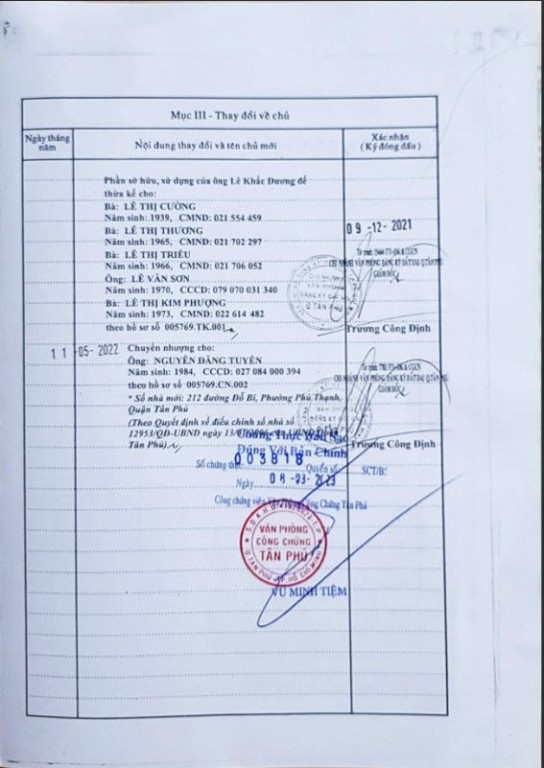 Mục III - Thay đổi về chủ
Ngày tháng năm
Nội dung thay đổi và tên chủ mới
Xác nhận
(Ký đóng dấu)
Phần sở hữu, sử dụng của ông Lê Khắc Dương để
thừa kế cho:
Bà: LÊ THỊ CƯỜNG
Năm sinh: 1939, CMND: 021 554 459
Bà: LÊ THỊ THƯƠNG
Năm sinh: 1965, CMND: 021 702 297
Bà: LÊ THỊ TRIỀU
Năm sinh: 1966, CMND: 021 706 052
Ông: LÊ VĂN SƠN
Năm sinh: 1970, CCCD: 079 070 031 340
Bà: LÊ THỊ KIM PHƯỢNG
Năm sinh: 1973, CMND: 022 614 482
theo hồ sơ số 005769.TK.001
09-12-2021
CHI NHÁNH VĂN PHÒNG ĐĂNG KÝ ĐẤT ĐAI QUẬN TÂN PHÚ
GIÁM ĐỐC
Trương Công Định
11-05-2022
Chuyển nhượng cho:
Ông: NGUYỄN ĐĂNG TUYÊN
Năm sinh: 1984, CCCD: 027 084 000 394
theo hồ sơ số 005769.CN.002
* Số nhà mới: 212 đường Đỗ Bí, Phường Phú Thạnh,
Quận Tân Phú
(Theo Quyết định về điều chỉnh số nhà số
12953/QĐ-UBND ngày
Tân Phú)
CHI NHÁNH VĂN PHÒNG ĐĂNG KÝ ĐẤT ĐAI QUẬN TÂN PHÚ
GIÁM ĐỐC
Trương Công Định
Chứng Thực Bản Sao
Đúng Với Bản Chính
Số chứng thực
003818
Quyển số:
SCT/B:
Ngày
08-03-2023
Công chứng viên Văn Phòng Công Chứng Tân Phú
VĂN PHÒNG
CÔNG CHỨNG
TÂN PHÚ
Q.TÂN PHÚ - TP. HỒ CHÍ MINH
VŨ MINH TIỆM